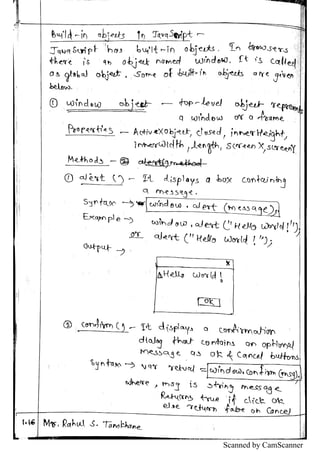 Build-in objects in JavaScript -
JavaScript has built-in objects. In browsers
there is an object named window. It is called
as global object. Some of built-in objects are given
below.
① window object - top-level object represents
a window or a frame
Properties - ActiveXObject, closed, innerHeight,
innerWidth, length, ScreenX, screenY
Methods -
① alert () - It displays a box containing
a message.
Syntax → window.alert (message);
Example → window.alert ("Hello World!");
or alert ("Hello World!");
Output →
x
Hello World!
OK
② confirm () - It displays a confirmation
dialog that contains an optional
message as ok & Cancel buttons.
Syntax → var retval = window.confirm (msg);
where, msg is string message
Returns true if click ok
else return false on Cancel
1.16 Mrs. Rahul S. Tamkhane
Scanned by CamScanner